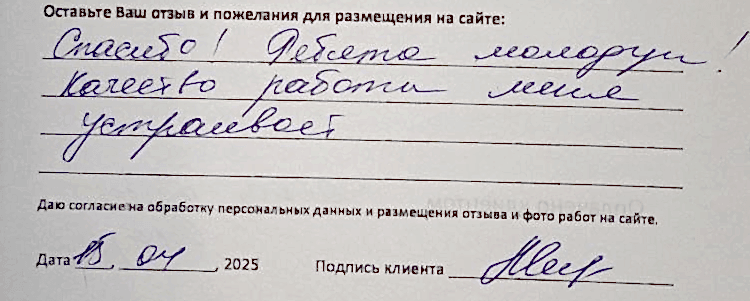 Оставьте Ваш отзыв и пожелания для размещения на сайте:
Спасибо! Ребята молодцы!
Качество работы меня
устраивает
Даю согласие на обработку персональных данных и размещения отзыва и фото работ на сайте.
Дата 15, 04, 2025 Подпись клиента